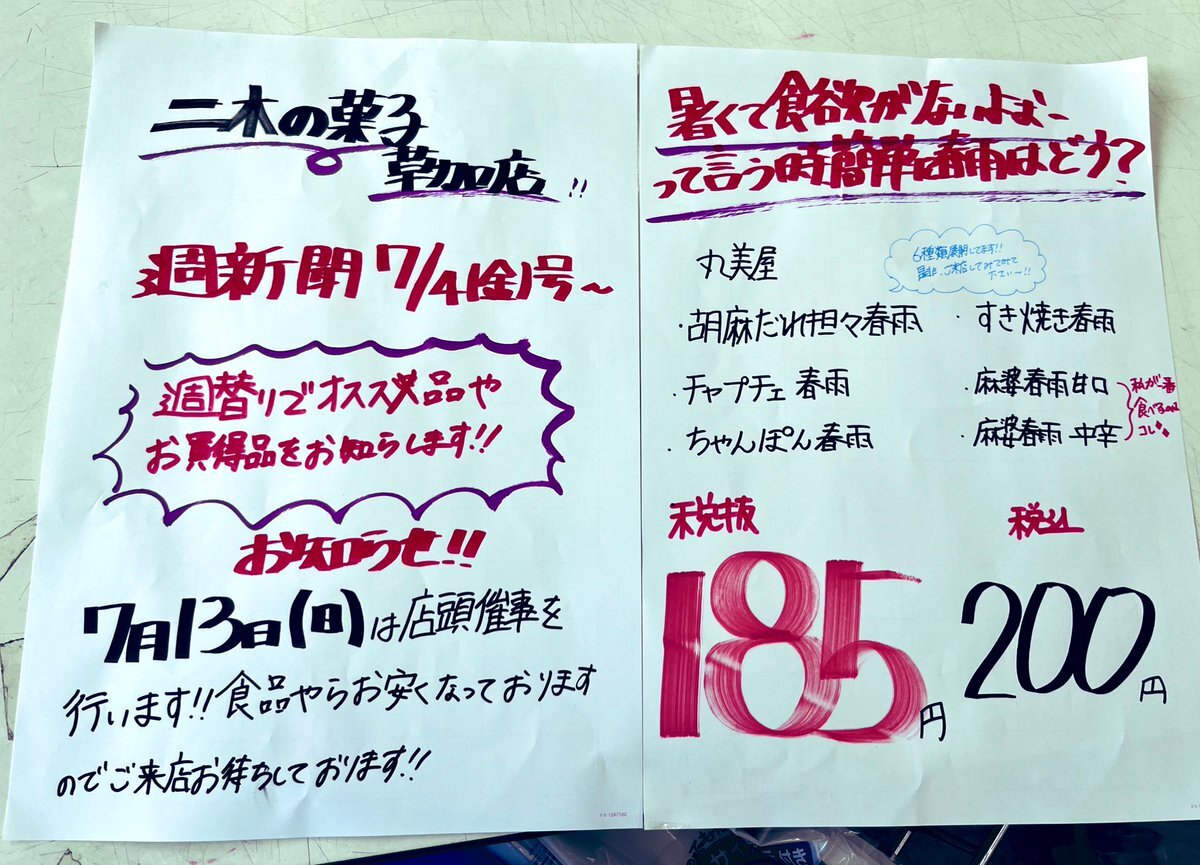 二木の菓子
草加店!!
週新聞 7/4(金)号~
週替りでオススメ品や
お買得品をお知らせします!!
お知らせ!!
7月13日(日)は店頭催事を
行います!!食品やらお安くなっております
のでご来店お待ちしております!!
暑くて食欲がないよぉ~
って言う時簡単春雨はどう?
6種類展開してます!!
是非、ご来店してみてみて
下さい~!!
丸美屋
・胡麻だれ担々春雨
・すき焼き春雨
・チャプチェ春雨
・麻婆春雨甘口
・ちゃんぽん春雨
・麻婆春雨 中辛
私が一番
食べるのは
コレ
税抜
185円
税込
200円